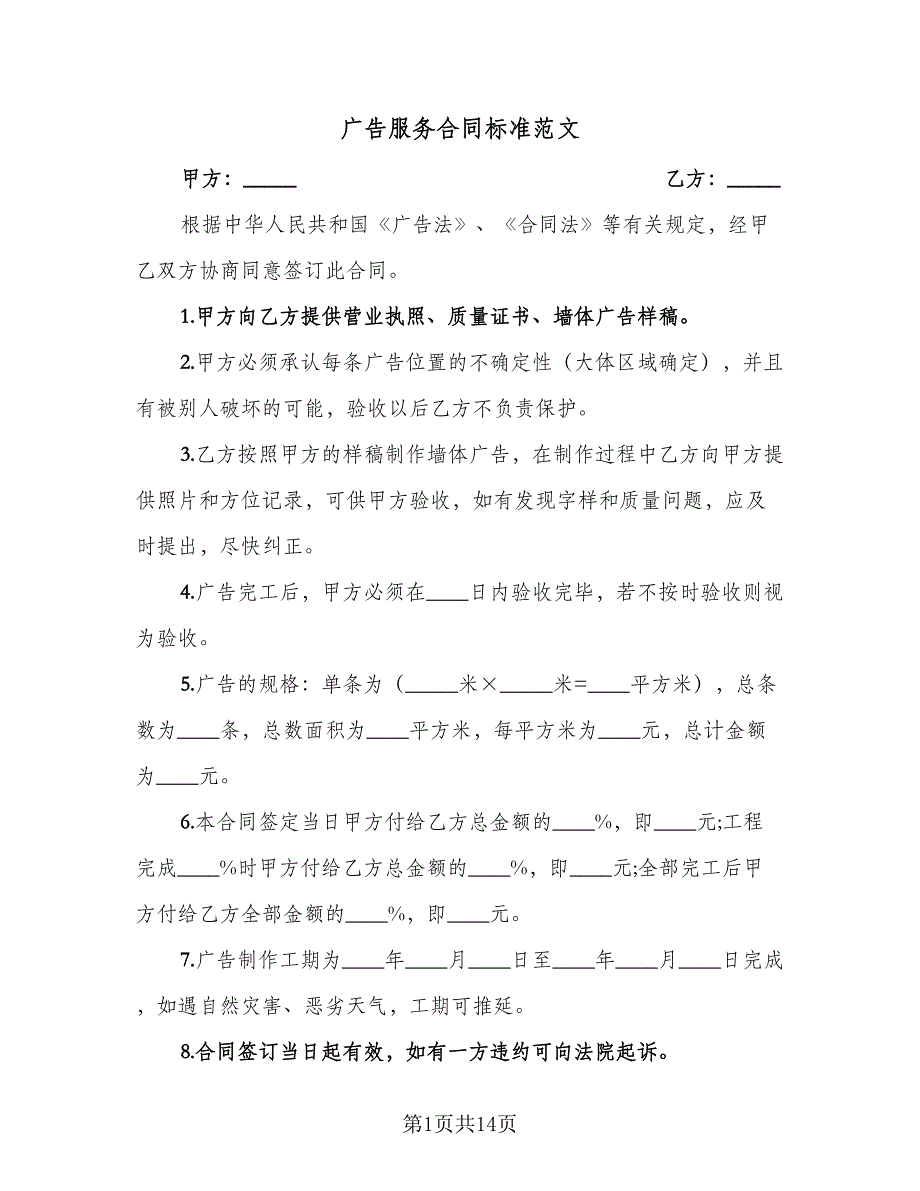 广告服务合同标准范文
甲方：_____ 乙方：_____
根据中华人民共和国《广告法》、《合同法》等有关规定，经甲
乙双方协商同意签订此合同。
1.甲方向乙方提供营业执照、质量证书、墙体广告样稿。
2.甲方必须承认每条广告位置的不确定性（大体区域确定），并且
有被别人破坏的可能，验收以后乙方不负责保护。
3.乙方按照甲方的样稿制作墙体广告，在制作过程中乙方向甲方提
供照片和方位记录，可供甲方验收，如有发现字样和质量问题，应及
时提出，尽快纠正。
4.广告完工后，甲方必须在____日内验收完毕，若不按时验收则视
为验收。
5.广告的规格：单条为（_____米×_____米=____平方米），总条
数为____条，总数面积为____平方米，每平方米为____元，总计金额
为____元。
6.本合同签定当日甲方付给乙方总金额的____%，即____元;工程
完成____%时甲方付给乙方总金额的____%，即____元;全部完工后甲
方付给乙方全部金额的____%，即____元。
7.广告制作工期为____年____月____日至____年____月____日完成
，如遇自然灾害、恶劣天气，工期可推延。
8.合同签订当日起有效，如有一方违约可向法院起诉。
第1页共14页